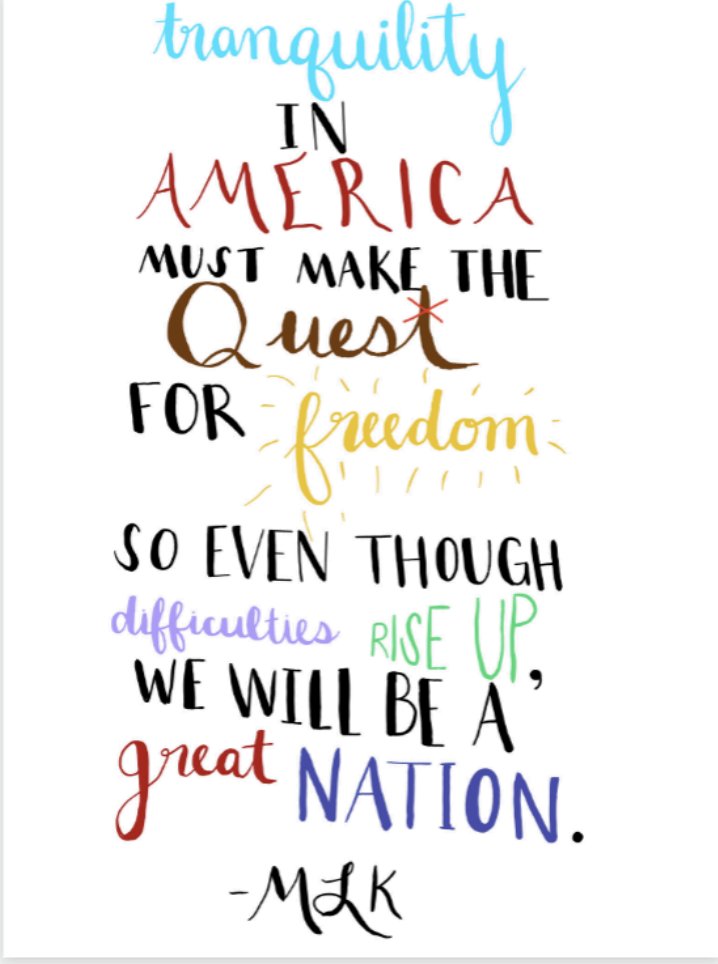 tranquility
IN
AMERICA
MUST MAKE THE
Quest
FOR freedom
SO EVEN THOUGH
difficulties RISE UP,
WE WILL BE A
great NATION.
-MLK